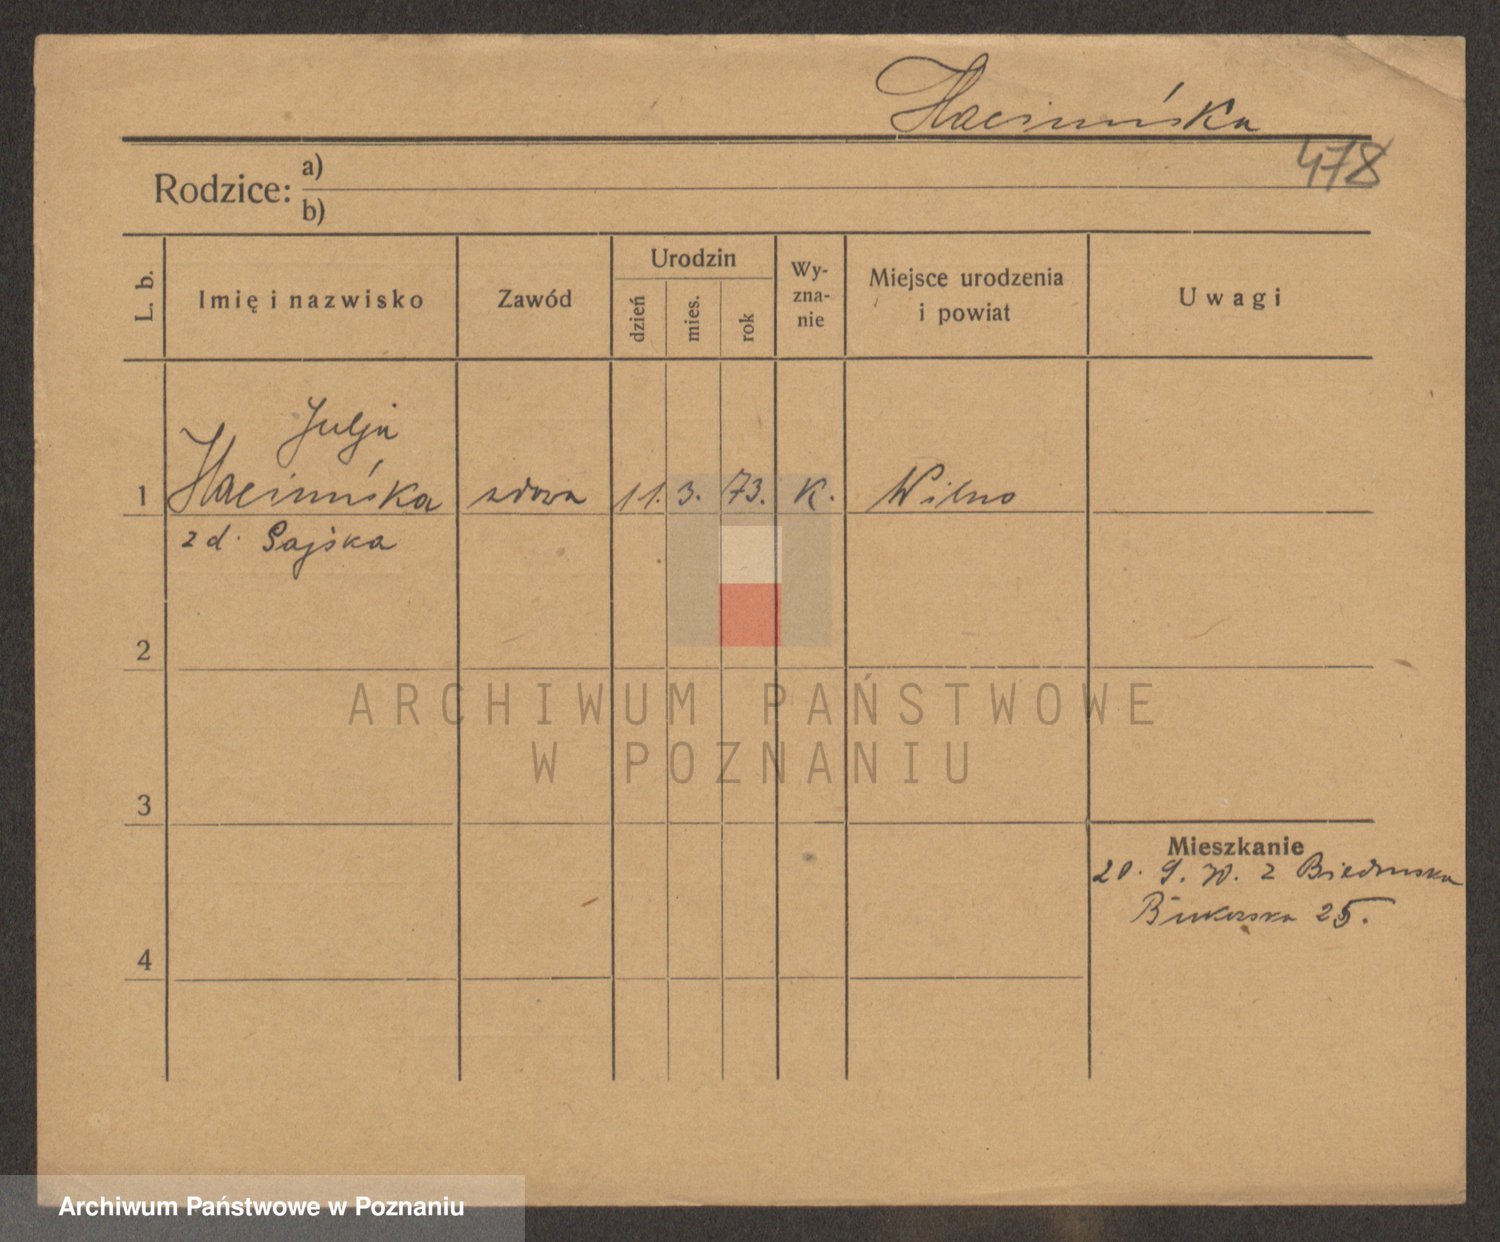 Hacimińska
478
Rodzice: a)
b)
L. b.
Imię i nazwisko
Zawód
Urodzin
dzień
mies.
rok
Wy-
zna-
nie
Miejsce urodzenia
i powiat
Uwagi
Julja
1 Hacimińska wdowa 11. 3. 73. K. Wilno
z d. Gajska
2
ARCHIWUM PAŃSTWOWE
W POZNANIU
3
Mieszkanie
20. 9. z Biedruska
Bukowska 25.
4
Archiwum Państwowe w Poznaniu